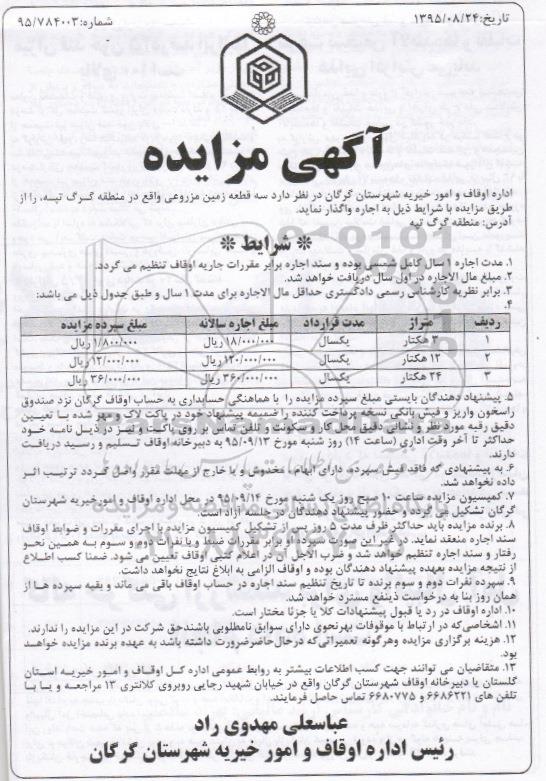 تاریخ: ۱۳۹۵/۰۸/۲۴
شماره: ۹۵/۷۸۴۰۰۳
آگهی مزایده
اداره اوقاف و امور خیریه شهرستان گرگان در نظر دارد سه قطعه زمین مزروعی واقع در منطقه گرگ تپه، را از
طریق مزایده با شرایط ذیل به اجاره واگذار نماید.
آدرس: منطقه گرگ تپه
* شرایط *
۱. مدت اجاره ۱ سال کامل شمسی بوده و سند اجاره برابر مقررات جاریه اوقاف تنظیم می گردد.
۲. مبلغ مال الاجاره در اول سال دریافت خواهد شد.
۳. برابر نظریه کارشناس رسمی دادگستری حداقل مال الاجاره برای مدت ۱ سال و طبق جدول ذیل می باشد:
۴.
ردیف متراژ مدت قرارداد مبلغ اجاره سالانه مبلغ سپرده مزایده
۱ ۳ هکتار یکسال ۱۸/۰۰۰/۰۰۰ ریال ۱/۸۰۰/۰۰۰ ریال
۲ ۱۲ هکتار یکسال ۱۲۰/۰۰۰/۰۰۰ ریال ۱۲/۰۰۰/۰۰۰ ریال
۳ ۲۴ هکتار یکسال ۳۶۰/۰۰۰/۰۰۰ ریال ۳۶/۰۰۰/۰۰۰ ریال
۵. پیشنهاد دهندگان بایستی مبلغ سپرده مزایده را با هماهنگی حسابداری به حساب اوقاف گرگان نزد صندوق
راسخون واریز و فیش بانکی نسخه پرداخت کننده را ضمیمه پیشنهاد خود در پاکت لاک و مهر شده با تعیین
دقیق رقبه مورد نظر و نشانی دقیق محل کار و سکونت و تلفن تماس در روی پاکت و نیز در ذیل نامه خود
حداکثر تا آخر وقت اداری (ساعت ۱۴) روز شنبه مورخ ۹۵/۰۹/۱۳ به دبیرخانه اوقاف تسلیم و رسید دریافت
دارند.
۶. به پیشنهادی که فاقد فیش سپرده، دارای ابهام، مخدوش و یا خارج از مهلت مقرر واصل گردد ترتیب اثر
داده نخواهد شد.
۷. کمیسیون مزایده ساعت ۱۰ صبح روز یک شنبه مورخ ۹۵/۰۹/۱۴ در محل اداره اوقاف و امور خیریه شهرستان
گرگان تشکیل می گردد و حضور پیشنهاد دهندگان در جلسه آزاد است.
۸. برنده مزایده باید حداکثر ظرف مدت ۵ روز پس از تشکیل کمیسیون مزایده با اجرای مقررات و ضوابط اوقاف
سند اجاره منعقد نماید. در غیر این صورت سپرده او برابر مقررات ضبط و با نفرات دوم و سوم به همین نحو
رفتار و سند اجاره تنظیم خواهد شد و ضرب الاجل آن در اعلام کتبی اوقاف تعیین می شود. ضمنا کسب اطلاع
از نتیجه مزایده بعهده پیشنهاد دهندگان بوده و اوقاف الزامی به ابلاغ نتایج نخواهد داشت.
۹. سپرده نفرات دوم و سوم برنده تا تاریخ تنظیم سند اجاره در حساب اوقاف باقی می ماند و بقیه سپرده ها از
همان روز بنا به درخواست ذینفع مسترد خواهد شد.
۱۰. اداره اوقاف در رد یا قبول پیشنهادات کلا یا جزئا مختار است.
۱۱. اشخاصی که در ارتباط با موقوفات بهر نحوی دارای سوابق نامطلوبی باشند حق شرکت در این مزایده را ندارند.
۱۲. هزینه برگزاری مزایده و هرگونه تعمیراتی که در حال حاضر ضرورت داشته باشد به عهده برنده مزایده خواهد
بود.
۱۳. متقاضیان می توانند جهت کسب اطلاعات بیشتر به روابط عمومی اداره کل اوقاف و امور خیریه استان
گلستان یا دبیرخانه اوقاف شهرستان گرگان واقع در خیابان شهید رجایی روبروی کلانتری ۱۳ مراجعه و یا با
تلفن های ۶۶۸۶۲۲۱ و ۶۶۸۰۷۷۵ تماس حاصل فرمایند.
عباسعلی مهدوی راد
رئیس اداره اوقاف و امور خیریه شهرستان گرگان